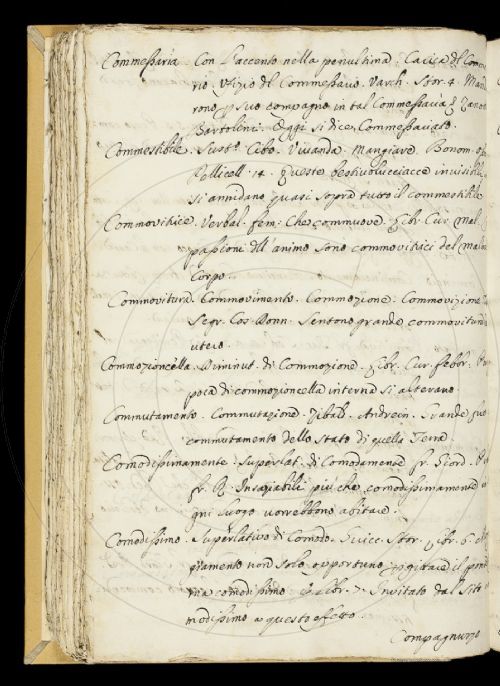 Commessarìa. Con l'accento nella penultima. Carica del Commes
rio. Ufizio del Commessario. Varch. Stor. 4. Mand
rono per suo compagno in tal Commessarìa Zano
Bartolini. Oggi si dice, Commessariato.
Commestibile. Sust. Cibo. Vivanda. Mangiare. Bonom.
Pellicell. 14. Queste bestiuolucciacce invisibile
si annidano quasi sopra tutto il commestibile
Commovitrice. Verbal. fem: Che commuove. Libr. Cur. Mal.
passioni dell'animo sono commovitrici del mal
Corpo.
Commovitura. Commovimento. Commozione. Commovizione
Segr. Cos. Donn. Sentono grande commovitura
utero.
Commozioncella. Diminut. di Commozione. Libr. Cur. febbr.
poca di commozioncella interna si alterano.
Commutamento. Commutazione. Zibald. Andrein. Grande fu
commutamento dello stato di quella Terra
Comodissimamente. Superlat. di Comodamente fr. Giord.
fr. R. Insaziabili più che comodissimamente
gni luogo vorrebbono abitare.
Comodissimo. Superlativo di Comodo. Guicc. Stor. Libr. 6.
giamento non solo opportuno gittare il pon
ma comodissimo. Libr. 7. Invitato dal sito
modissimo a questo effetto.
Compagnuzzo